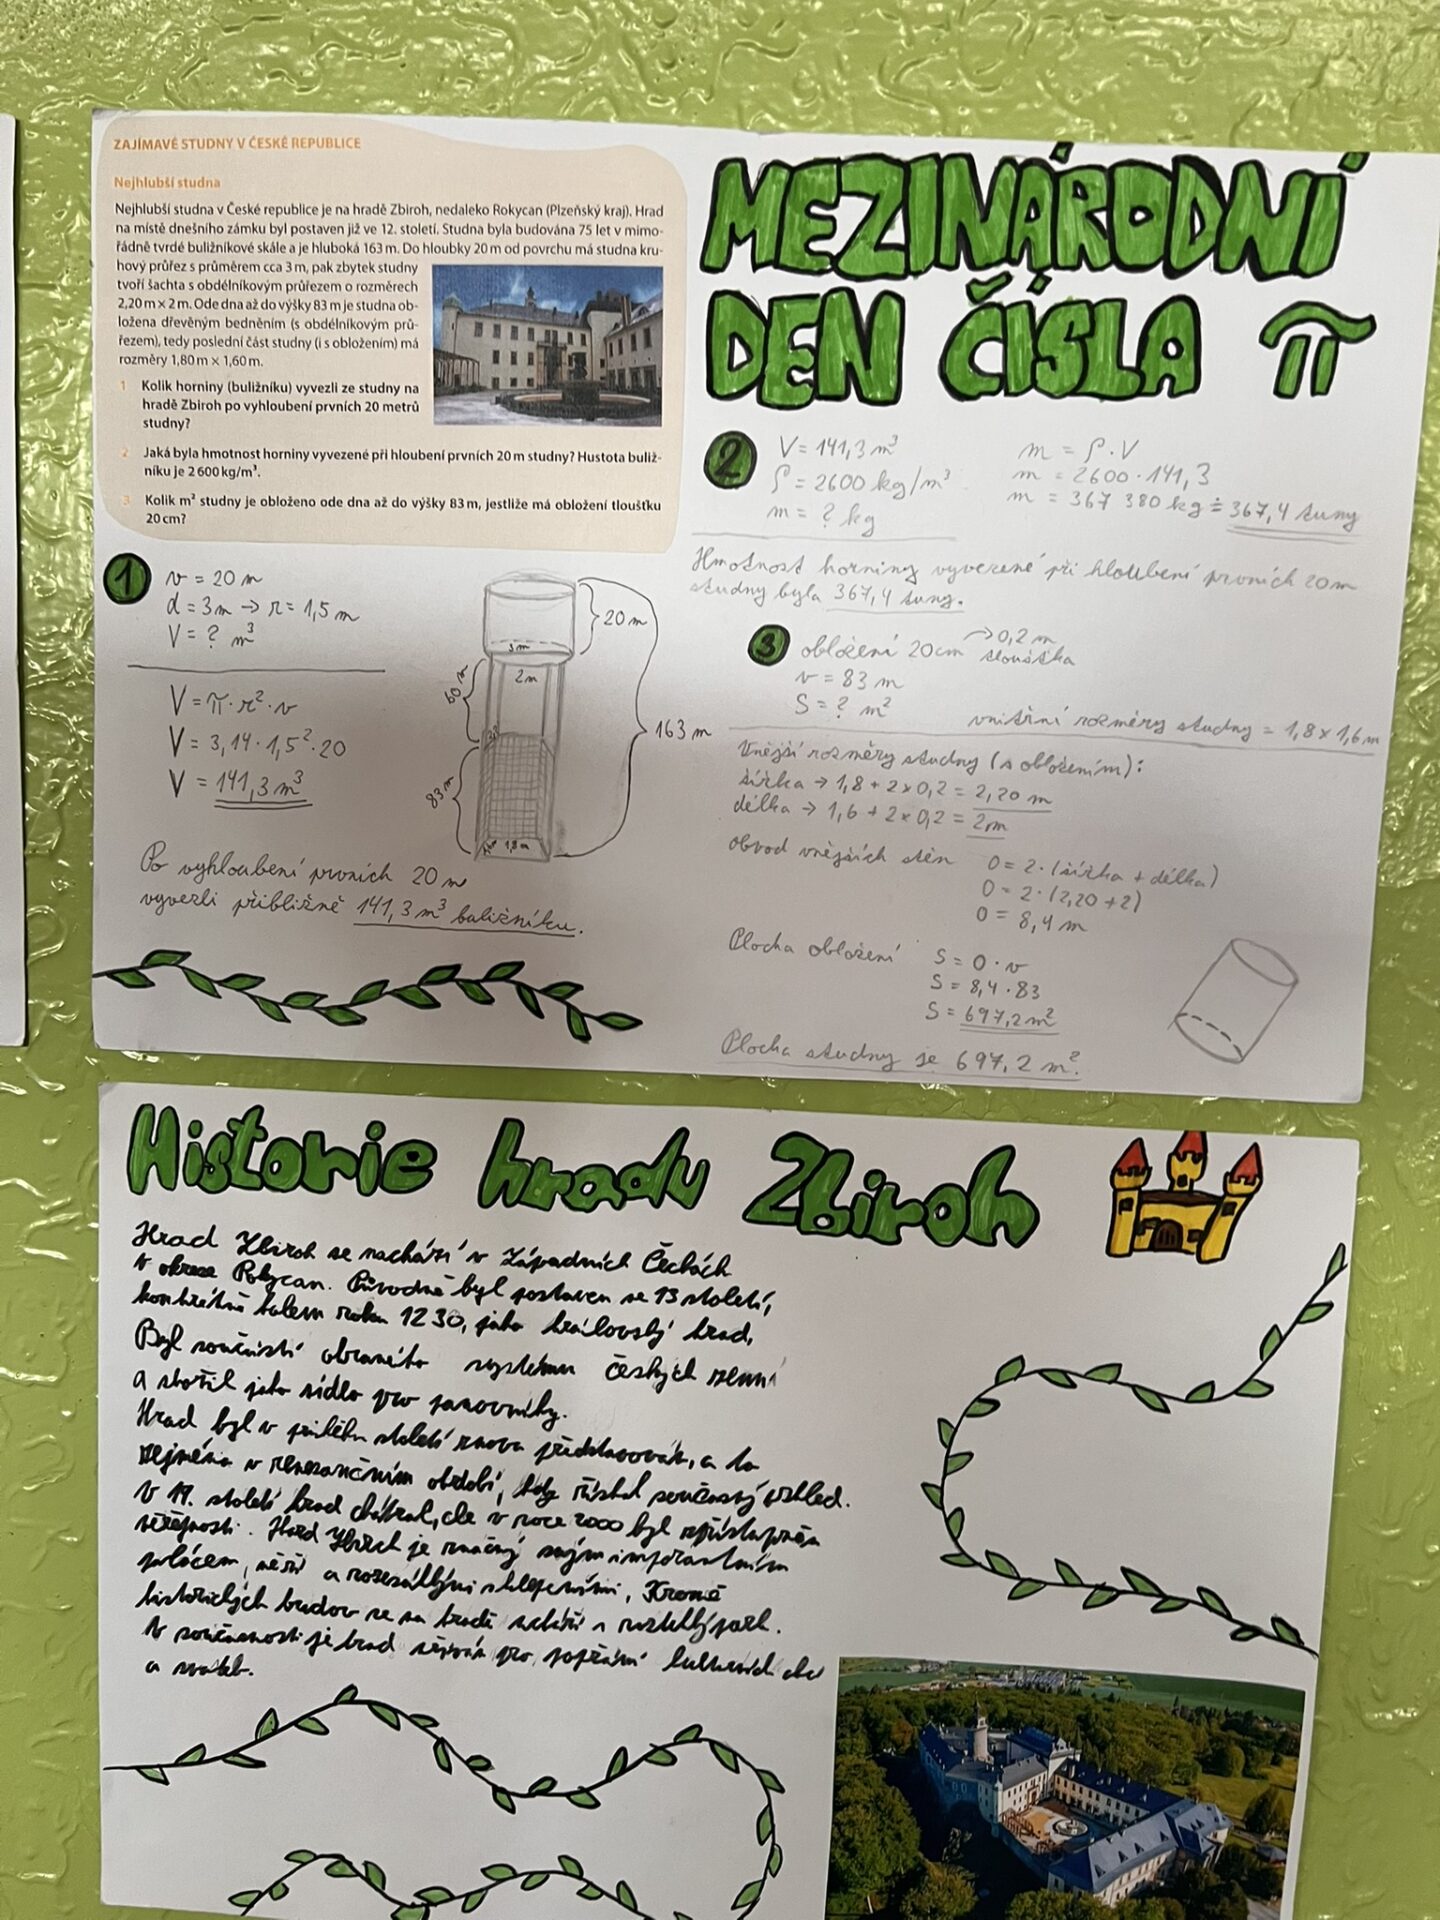 ZAJÍMAVÉ STUDNY V ČESKÉ REPUBLICE
Nejhlubší studna
Nejhlubší studna v České republice je na hradě Zbiroh, nedaleko Rokycan (Plzeňský kraj). Hrad
na místě dnešního zámku byl postaven již ve 12. století. Studna byla budována 75 let v mimo-
řádně tvrdé buližníkové skále a je hluboká 163 m. Do hloubky 20 m od povrchu má studna kru-
hový průřez s průměrem cca 3 m, pak zbytek studny
tvoří šachta s obdélníkovým průřezem o rozměrech
2,20 m × 2 m. Ode dna až do výšky 83 m je studna ob-
ložena dřevěným bedněním (s obdélníkovým prů-
řezem), tedy poslední část studny (i s obložením) má
rozměry 1,80 m × 1,60 m.
1 Kolik horniny (buližníku) vyvezli ze studny na
hradě Zbiroh po vyhloubení prvních 20 metrů
studny?
2 Jaká byla hmotnost horniny vyvezené při hloubení prvních 20 m studny? Hustota buliž-
níku je 2 600 kg/m³.
3 Kolik m² studny je obloženo ode dna až do výšky 83 m, jestliže má obložení tloušťku
20 cm?
1
v = 20 m
d = 3m → r = 1,5 m
V = ? m³
V = π · r² · v
V = 3,14 · 1,5² · 20
V = 141,3 m³
20 m
3m
2m
60 m
163 m
83 m
1,8 m
Po vyhloubení prvních 20 m
vyvezli přibližně 141,3 m³ baližníku.
MEZINÁRODNÍ
DEN ČÍSLA π
2
V = 141,3 m³
ρ = 2600 kg/m³
m = ? kg
m = ρ · V
m = 2600 · 141,3
m = 367 380 kg ≐ 367,4 tuny
Hmotnost horniny vyvezené při hloubení prvních 20 m
studny byla 367,4 tuny.
3
obložení 20cm → 0,2 m
tloušťka
v = 83 m
S = ? m²
vnitřní rozměry studny = 1,8 x 1,6 m
Vnější rozměry studny (s obložením):
šířka → 1,8 + 2 x 0,2 = 2,20 m
délka → 1,6 + 2 x 0,2 = 2m
obvod vnějších stěn
O = 2 · (šířka + délka)
O = 2 · (2,20 + 2)
O = 8,4 m
Plocha obložení
S = O · v
S = 8,4 · 83
S = 697,2 m²
Plocha studny je 697,2 m².
Historie hradu Zbiroh
Hrad Zbiroh se nachází v Západních Čechách
v okrese Rokycan. Původně byl postaven ve 13 století,
konkrétně kolem roku 1230, jako královský hrad.
Byl součástí obraného systému českých zemí
a sloužil jako sídlo pro panovníky.
Hrad byl v průběhu století znova přestavován, a to
zejména v renesančním období, kdy získal současný vzhled.
V 19. století hrad chátral, ale v roce 2000 byl zpřístupněn
veřejnosti. Hrad Zbiroh je značný svým
palácem, věží a rozsáhlými sklepeními, Kromě
historických budov se na hradě nachází i rozlehlý park.
V současnosti je hrad užíván pro pořádání kulturních akc
a svateb.